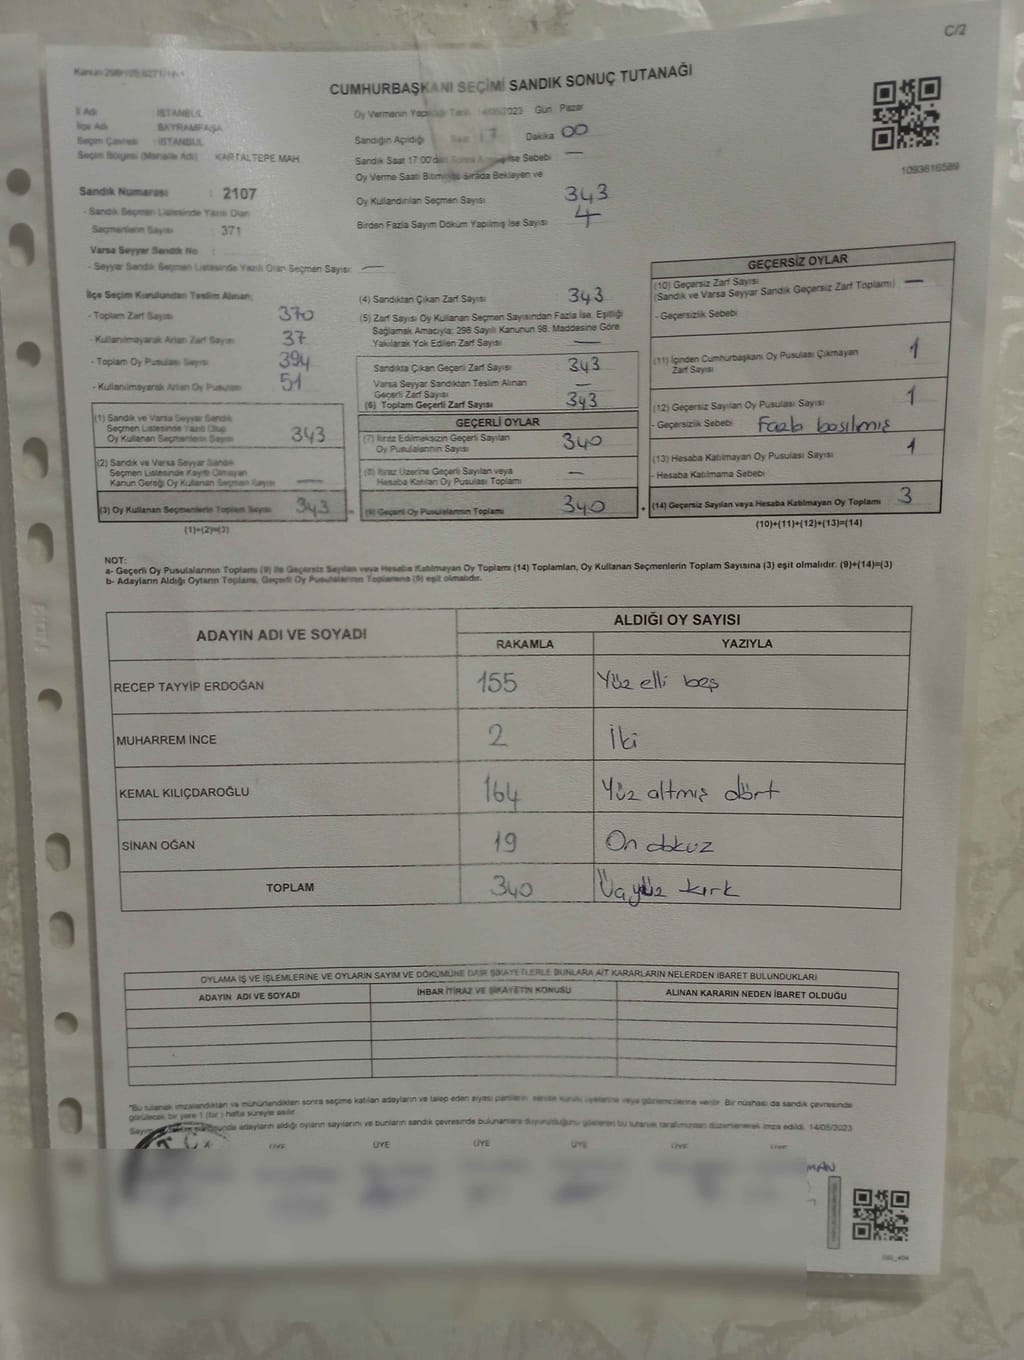 C/2
CUMHURBAŞKANI SEÇİMİ SANDIK SONUÇ TUTANAĞI
İl Adı İSTANBUL
İlçe Adı BAYRAMPAŞA
Seçim Çevresi : İSTANBUL
Seçim Bölgesi (Mahalle Adı) KARTALTEPE MAH.
Sandık Numarası : 2107
- Sandık Seçmen Listesinde Yazılı Olan
Seçmenlerin Sayısı : 371
Varsa Seyyar Sandık No :
- Seyyar Sandık Seçmen Listesinde Yazılı Olan Seçmen Sayısı: —
Oy Vermenin Yapıldığı Tarih 14/05/2023 Gün Pazar
Sandığın Açıldığı Saat 17 Dakika 00
Sandık Saat 17:00'dan Sonra ise Sebebi —
Oy Verme Saati Bitiminde Sırada Bekleyen ve
Oy Kullandırılan Seçmen Sayısı 343
Birden Fazla Sayım Döküm Yapılmış İse Sayısı 4
1093616589
İlçe Seçim Kurulundan Teslim Alınan;
- Toplam Zarf Sayısı 370
- Kullanılmayarak Artan Zarf Sayısı 37
- Toplam Oy Pusulası Sayısı 394
- Kullanılmayarak Artan Oy Pusulası 51
(1) Sandık ve Varsa Seyyar Sandık
Seçmen Listesinde Yazılı Olup
Oy Kullanan Seçmenlerin Sayısı 343
(2) Sandık ve Varsa Seyyar Sandık
Seçmen Listesinde Kayıtlı Olmayan
Kanun Gereği Oy Kullanan Seçmen Sayısı —
(3) Oy Kullanan Seçmenlerin Toplam Sayısı 343 =
(1)+(2)=(3)
(4) Sandıktan Çıkan Zarf Sayısı 343
(5) Zarf Sayısı Oy Kullanan Seçmen Sayısından Fazla İse, Eşitliği
Sağlamak Amacıyla; 298 Sayılı Kanunun 98. Maddesine Göre
Yakılarak Yok Edilen Zarf Sayısı —
Sandıkta Çıkan Geçerli Zarf Sayısı 343
Varsa Seyyar Sandıktan Teslim Alınan
Geçerli Zarf Sayısı —
(6) Toplam Geçerli Zarf Sayısı 343
GEÇERLİ OYLAR
(7) İtiraz Edilmeksizin Geçerli Sayılan
Oy Pusulalarının Sayısı 340
(8) İtiraz Üzerine Geçerli Sayılan veya
Hesaba Katılan Oy Pusulası Toplamı —
(9) Geçerli Oy Pusulalarının Toplamı 340 +
GEÇERSİZ OYLAR
(10) Geçersiz Zarf Sayısı
(Sandık ve Varsa Seyyar Sandık Geçersiz Zarf Toplamı) —
- Geçersizlik Sebebi
(11) İçinden Cumhurbaşkanı Oy Pusulası Çıkmayan
Zarf Sayısı 1
(12) Geçersiz Sayılan Oy Pusulası Sayısı 1
- Geçersizlik Sebebi Fazla basılmış
(13) Hesaba Katılmayan Oy Pusulası Sayısı 1
- Hesaba Katılmama Sebebi
(14) Geçersiz Sayılan veya Hesaba Katılmayan Oy Toplamı 3
(10)+(11)+(12)+(13)=(14)
NOT:
a- Geçerli Oy Pusulalarının Toplamı (9) ile Geçersiz Sayılan veya Hesaba Katılmayan Oy Toplamı (14) Toplamları, Oy Kullanan Seçmenlerin Toplam Sayısına (3) eşit olmalıdır. (9)+(14)=(3)
b- Adayların Aldığı Oyların Toplamı, Geçerli Oy Pusulalarının Toplamına (9) eşit olmalıdır.
ADAYIN ADI VE SOYADI ALDIĞI OY SAYISI
RAKAMLA YAZIYLA
RECEP TAYYİP ERDOĞAN 155 Yüz elli beş
MUHARREM İNCE 2 İki
KEMAL KILIÇDAROĞLU 164 Yüz altmış dört
SİNAN OĞAN 19 On dokuz
TOPLAM 340 Üçyüz kırk
OYLAMA İŞ VE İŞLEMLERİNE VE OYLARIN SAYIM VE DÖKÜMÜNE DAİR ŞİKAYETLERLE BUNLARA AİT KARARLARIN NELERDEN İBARET BULUNDUKLARI
ADAYIN ADI VE SOYADI İHBAR İTİRAZ VE ŞİKAYETİN KONUSU ALINAN KARARIN NEDEN İBARET OLDUĞU
"Bu tutanak imzalandıktan ve mühürlendikten sonra seçime katılan adayların ve talep eden siyasi partilerin sandık kurulu üyelerine veya gözlemcilerine verilir. Bir nüshası da sandık çevresinde
görülecek bir yere 1 (bir) hafta süreyle asılır.
adayların aldığı oyların sayılarını ve bunların sandık çevresinde bulunanlara duyurulduğunu gösteren bu tutanak tarafımızdan düzenlenerek imza edildi. 14/05/2023
T.C.
ÜYE ÜYE ÜYE ÜYE ÜYE ÜYE
MAN